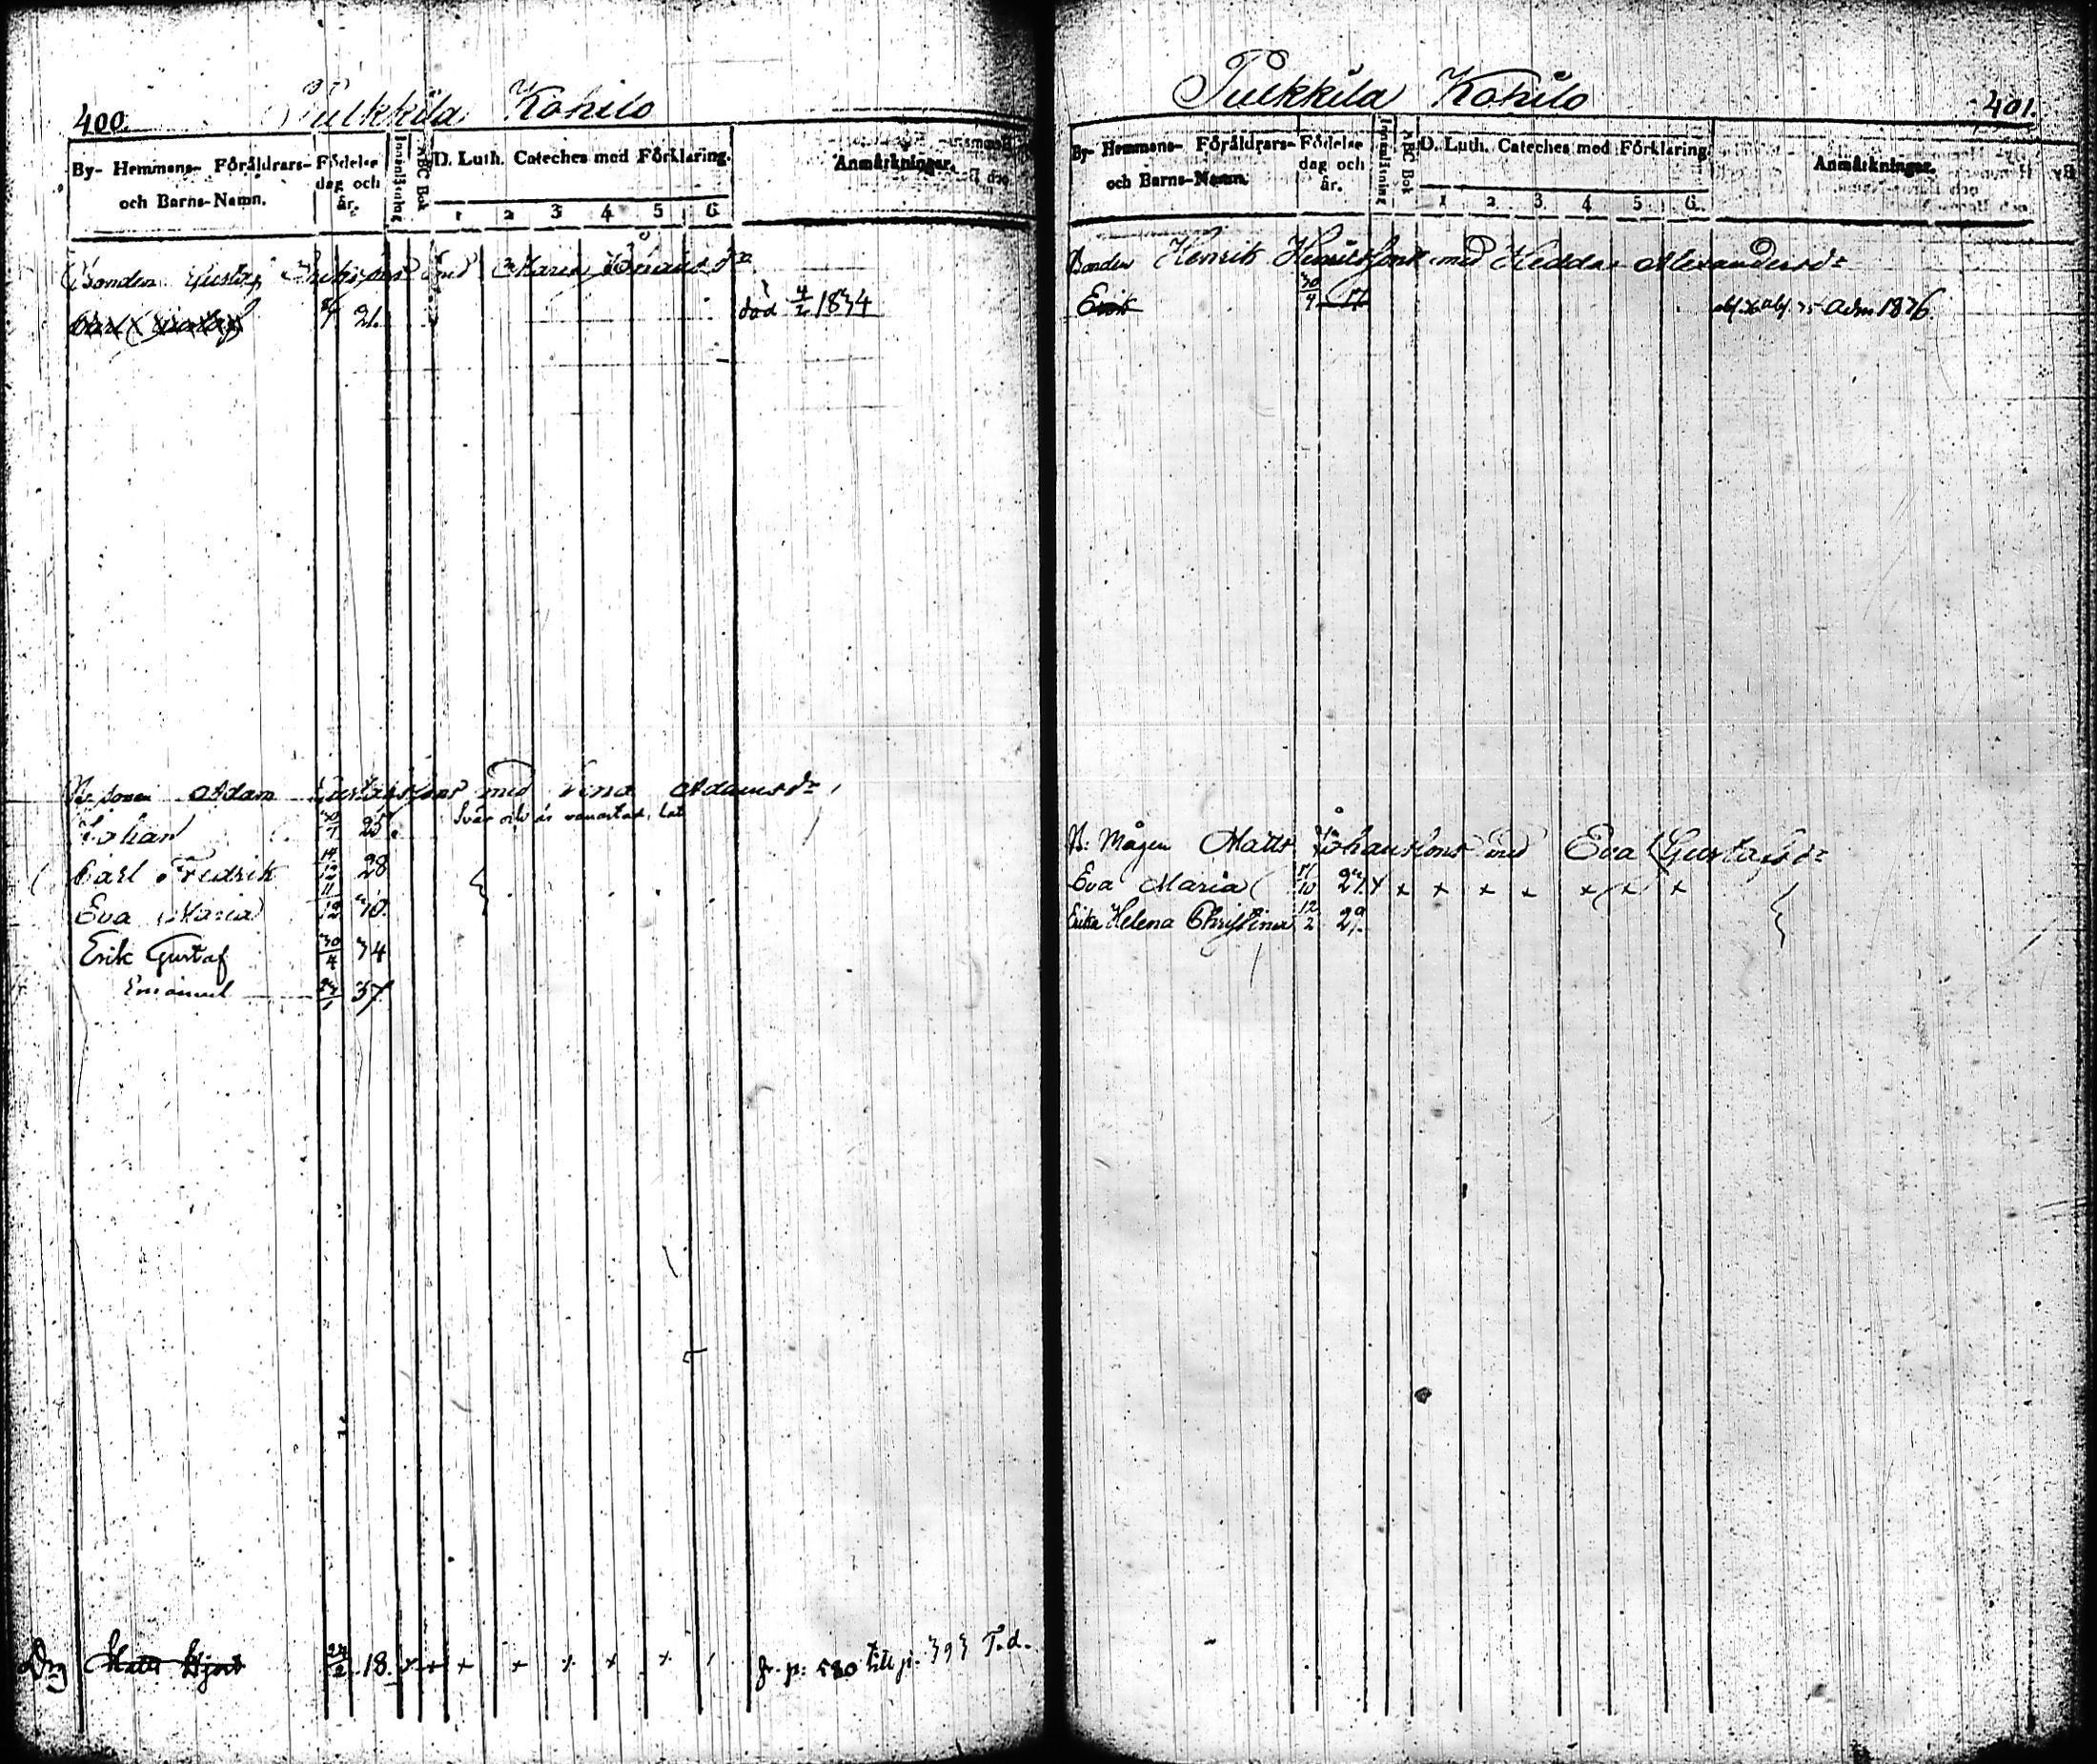 400. Pulkkila Kohilo
By- Hemmans- Föräldrars- och Barns-Namn. Födelse dag och år. Innanläsning ABC Bok D. Luth. Cateches med Förklaring. 1 2 3 4 5 6 Anmärkningar.
Bonden Gustaf med Maria
Carl Gustaf 21. död 4/2 1834
Adam Gustafsson med Lena Adamsdr
Johan 25.
Svår och är vanartad, lat
Carl Fredrik 14/12 28
Eva Maria 11/12 30.
Erik Gustaf 30/4 34
Emanuel 37
Drg Matts Hjort 18. x x x x x x x fr. p: 580 till p. 393 T.d.
Pulkkila Kohilo 401.
By- Hemmans- Föräldrars- och Barns-Namn. Födelse dag och år. Innanläsning ABC Bok D. Luth. Cateches med Förklaring. 1 2 3 4 5 6. Anmärkningar.
Bonden Henrik Henriksson med Hedda Alexandersdr
Erik 30/4 17 Adm 1836.
B: Mågen Matts Johansson med Eva Gustafsdr
Eva Maria 27. x x x x x x x x
Erika Helena Christina 12/2 29.